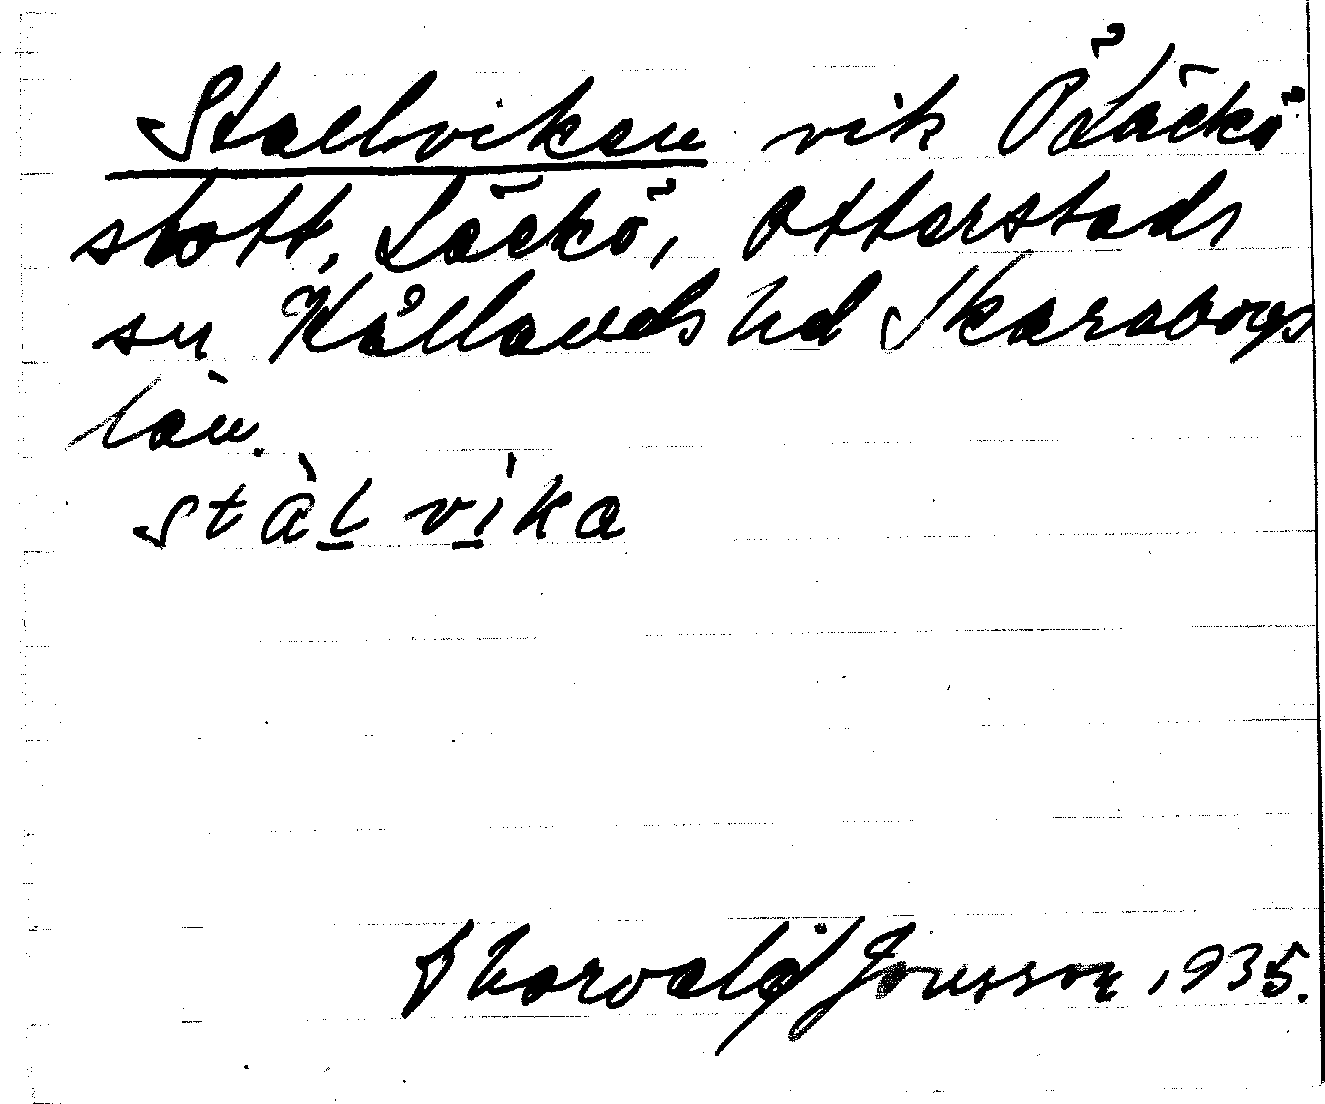 Stallviken vik Ö Läckö
slott, Läckö, Otterstads
sn Kållands hd Skaraborgs
län.
stàl vìka
Thorvald Jonsson 1935.